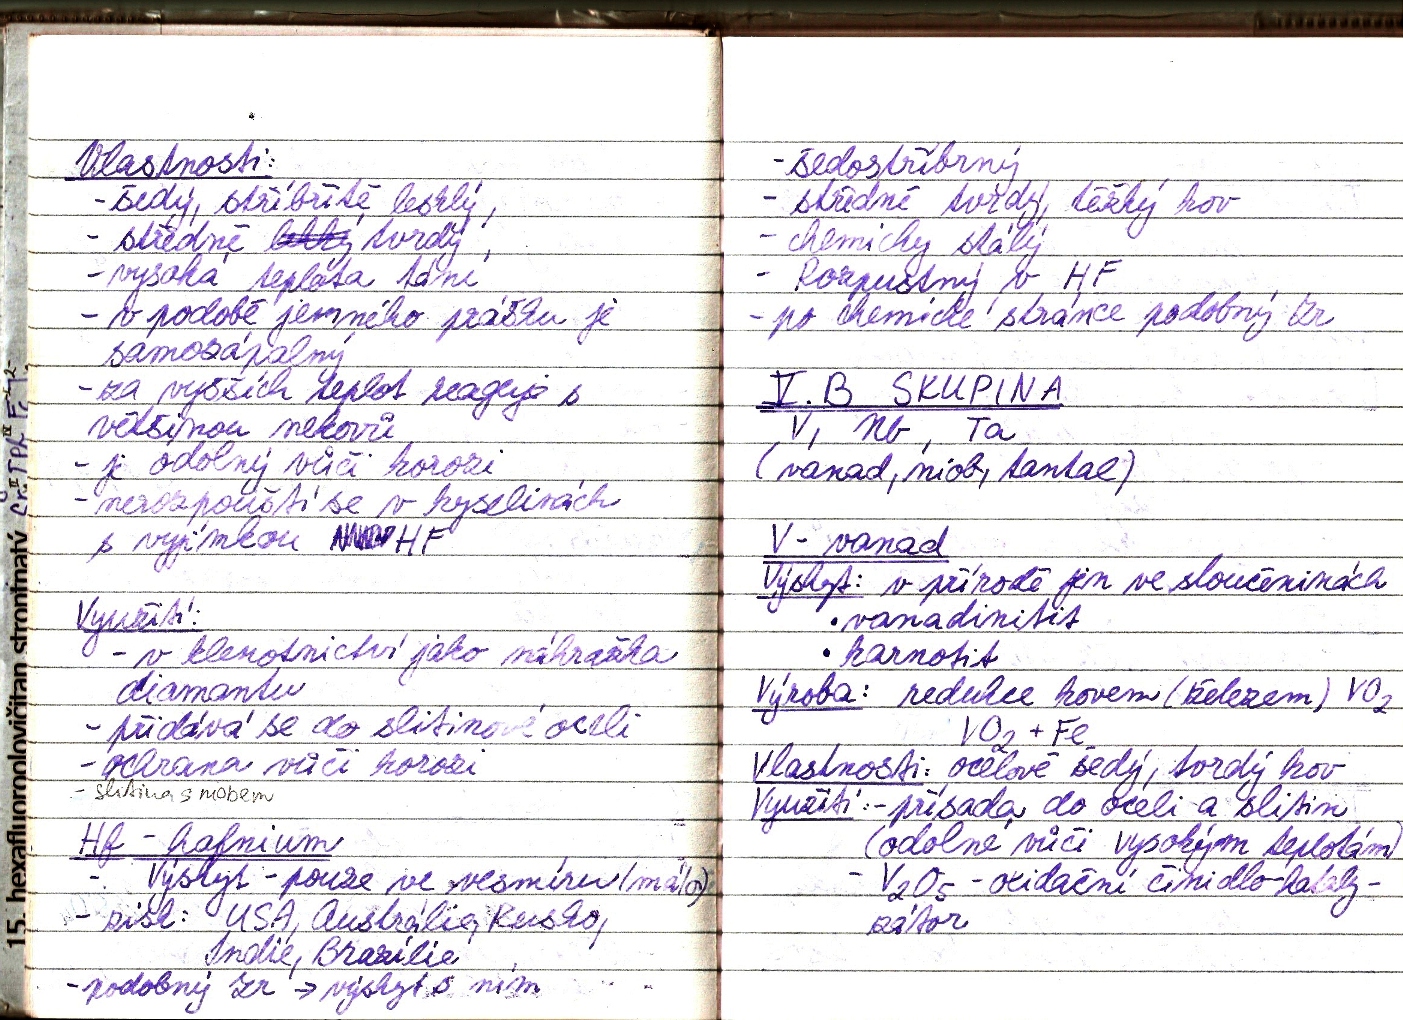 Vlastnosti:
- šedý, stříbřitě lesklý,
- středně tvrdý,
- vysoká teplota tání
- v podobě jemného prášku je
samozápalný
- za vyšších teplot reaguje s
většinou nekovů
- je odolný vůči korozi
- nerozpouští se v kyselinách
s vyjímkou HF
Využití:
- v klenotnictví jako náhražka
diamantu
- přidává se do slitinové oceli
- ochrana vůči korozi
- slitina s niobem
Hf - hafnium
- Výskyt - pouze ve vesmíru (málo)
- získ: USA, Austrálie, Rusko,
Indie, Brazílie
- podobný Zr → výskyt s ním
- šedostříbrný
- středně tvrdý, těžký kov
- chemicky stálý
- Rozpustný v HF
- po chemické stránce podobný Zr
V.B SKUPINA
V, Nb, Ta
(vanad, niob, tantal)
V - vanad
Výskyt: v přírodě jen ve sloučeninách
• vanadinitit
• karnotit
Výroba: redukce kovem (železem) VO₂
VO₂ + Fe
Vlastnosti: ocelově šedý, tvrdý kov
Využití: - přísada do oceli a slitin
(odolné vůči vysokým teplotám)
- V₂O₅ - oxidační činidlo - kataly-
zátor
15. hexafluoromolovičitan strontnatý